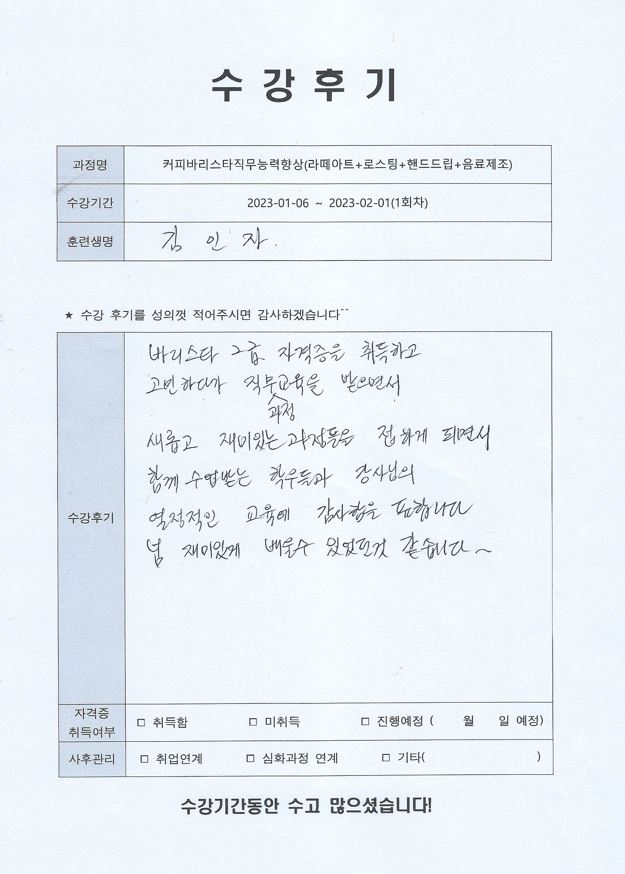 수강후기
과정명 커피바리스타직무능력향상(라떼아트+로스팅+핸드드립+음료제조)
수강기간 2023-01-06 ~ 2023-02-01(1회차)
훈련생명 김 인 자.
★ 수강 후기를 성의껏 적어주시면 감사하겠습니다^^
수강후기
바리스타 2급 자격증을 취득하고
고민하다가 직무교육을 받으면서
과정
새롭고 재미있는 과정들을 접하게 되면서
함께 수업받는 학우들과 강사님의
열정적인 교육에 감사함을 표합니다
넘 재미있게 배울수 있었던것 같습니다~
자격증
취득여부 □ 취득함 □ 미취득 □ 진행예정 ( 월 일 예정)
사후관리 □ 취업연계 □ 심화과정 연계 □ 기타( )
수강기간동안 수고 많으셨습니다!